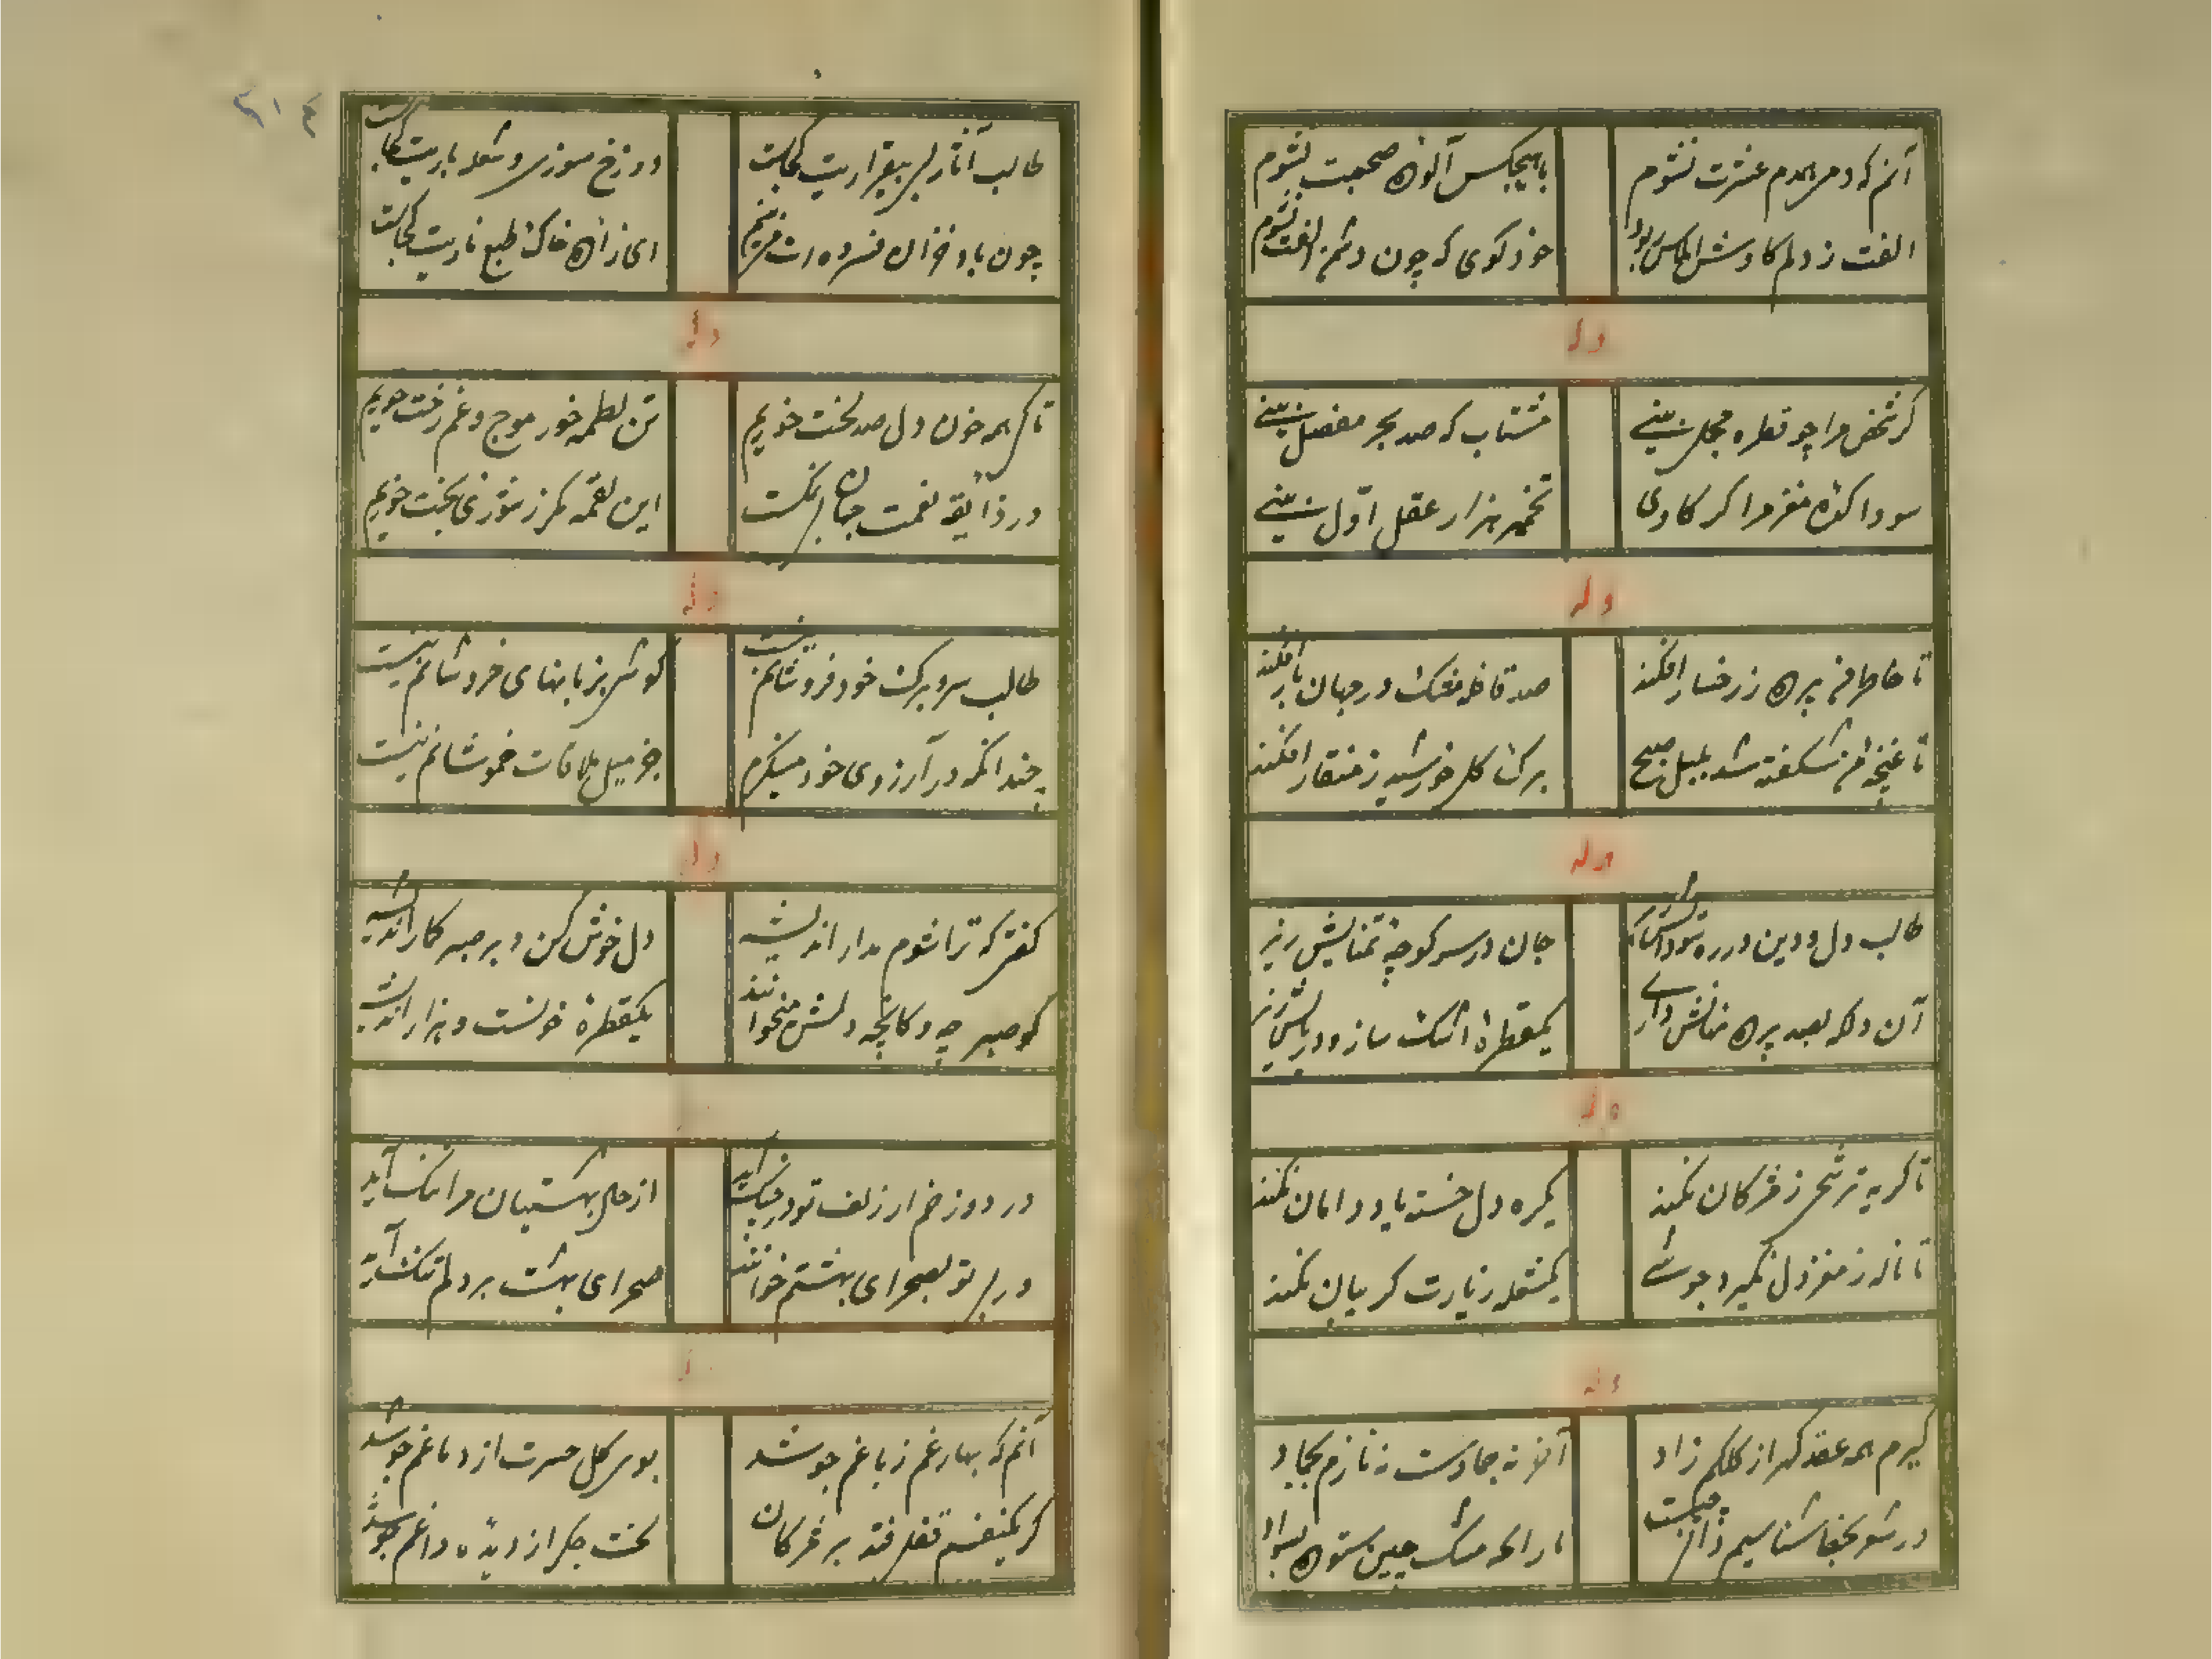 آنم که دمی همدم عشرت نشوم
با هیچکس آلوده صحبت نشوم
الفت ز دلم کاوش الماس ربود
خود کوی که چون دشمن الفت نشوم
وله
کر شخص مرا چو قطره مجمل بینی
مشتاب که صد بحر مفصل بینی
سودا کده مغز مرا کر کاوی
تخمیر هزار عقل اول بینی
وله
تا خاطر من پرده ز رخسار افکند
صد قافله مشک در جهان بار افکند
تا غنچه من شکفته شد بلبل صبح
برک کل خورشید ز منقار افکند
وله
طالب دل و دین در ره سوداش
جان در سر کوچه تمنایش ریز
آن دل که بصد پرده نهانش داری
یکقطره اشک ساز و در پایش ریز
وله
تا کریه ترشحی ز مژکان نکند
یکره دل خسته یاد دامان نکند
تا ناله ز مغز دل نکیرد جوشی
یکشعله زیارت کریبان نکند
وله
کیرم همه عقد کهر از کلکم زاد
آخر نه جمادست نه نازم بجماد
در شو بخفا شناسیم ز آنکه
را رایحه مشک چین ستوده
۲۱۴
طالب آثار بیقراریت کجاست
دوزخ سوزی و شعله باریت کجاست
چون باد خزان فسرده ات می بینم
ای زاده خاک طبع ناریت کجاست
وله
تا کی همه خون دل صد لخت خوریم
تن لطمه خور موج و غم رخت خوریم
در ذایقه نعمت جهان بی نمکست
این لقمه مکر ز شوری بخت خوریم
وله
طالب سر و برک خود فروشانم نیست
کوشی بزبانهای خروشانم نیست
چندانکه در آرزوی خود مینکرم
جز میل ملاقات خموشانم نیست
وله
کفتی که ترا شوم مدار اندیشه
دل خوش کن و بر صبر کار اندیشه
کو صبر چه دل کانچه دلش میخوانند
یکقطره خونست و هزار اندیشه
در دوزخم ار زلف تو در چنک آید
از حال بهشتیان مرا ننک آید
ور بی تو بصحرای بهشتم خوانند
صحرای بهشت بر دلم تنک آید
آنم که بهار غم ز باغم جوشد
بوی کل حسرت از دماغم جوشد
کر یکنفسم قفل فتد بر مژکان
لخت جکر از دیده داغم جوشد